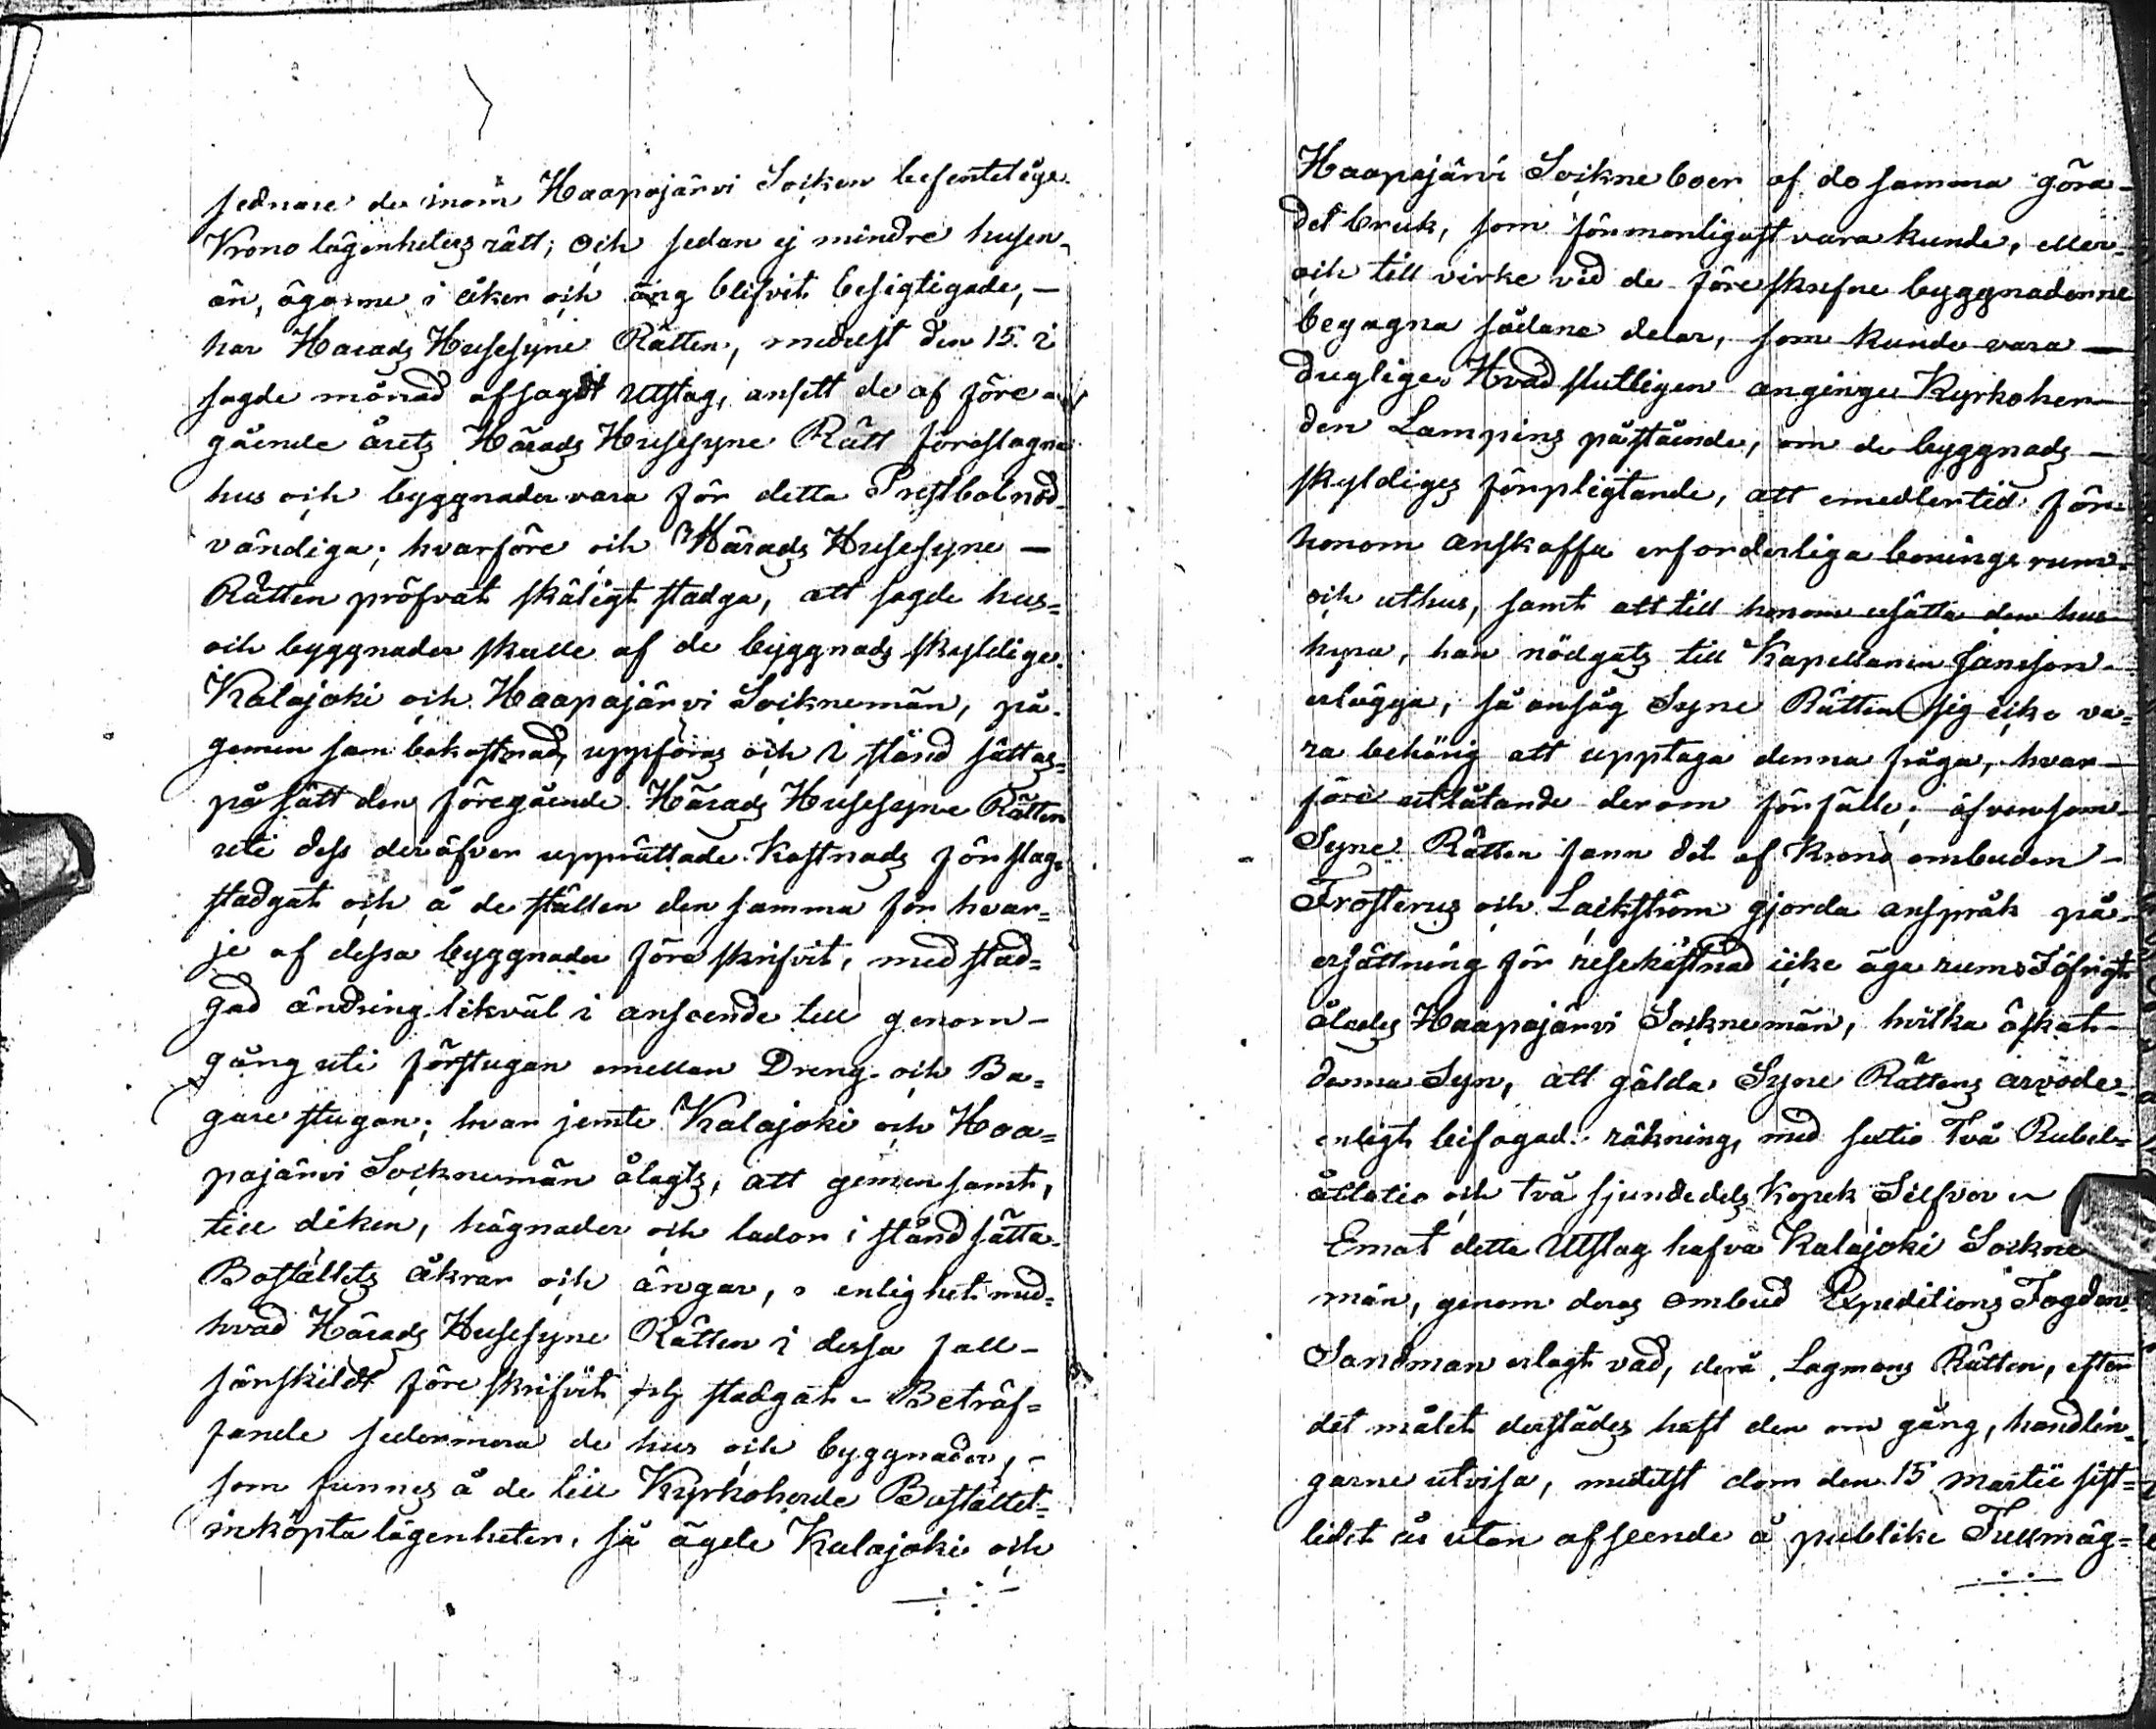 sednare de inom Haapajärvi Socken befintelige
Krono lägenheters rätt; och sedan ej mindre husen,
än ägorne i åker och äng blifvit besigtigade, —
har Härads Husesyne Rätten, medelst den 15. i
sagde månad afsagdt Utslag, ansett de af före
gående årets Härads Husesyne Rätt föreslagne
hus och byggnader vara för detta Prestbol nöd-
vändiga; hvarföre och Härads Husesyne —
Rätten pröfvat skäligt stadga, att sagde hus=
och byggnader skulle af de byggnads skyldige
Kalajoki och Haapajärvi Socknemän, på
gemensam bekostnad, uppföras och i stånd sättas=
på sätt den föregående Härads Husesyne Rätten
uti dess deröfver upprättade Kostnads förslag
stadgat och å de ställen den samma för hvar=
je af dessa byggnader föreskrifvit, med stad=
gad ändring likväl i anseende till genom-
gång uti förstugan emellan Dreng- och Ba=
gare stugan; hvar jemte Kalajoki och Haa=
pajärvi Socknemän ålagts, att gemensamt,
till diken, hägnader och lador i stånd sätta
Boställets åkrar och ängar, i enlighet med=
hvad Härads Husesyne Rätten i dessa fall-
särskildt föreskrifvit och stadgat. Beträf=
fande sedermera de hus och byggnader, -
som funnes å de till Kyrkoherde Bostället=
inköpta lägenheter, så ägde Kalajoki och
Haapajärvi Sockneboer af de samma göra
det bruk, som förmonligast vara kunde, eller
och till virke vid de föreskrefne byggnaderne
begagna sådane delar, som kunde vara —
duglige. Hvad slutligen anginge Kyrkoher-
den Lampins påstående, om de byggnads —
skyldiges förpligtande, att emedlertid för
honom anskaffa erforderliga bonings rum
och uthus, samt att till honom ersätta den hus
hyra, han nödgats till Kapellanen Jansson
erlägga, så ansåg Syne Rätten sig icke va=
ra behörig att upptaga denna fråga, hvar-
före utlåtande derom förfälle; äfvensom
Syne Rätten fann det af Krono ombuden -
Frosterus och Lackström gjorda anspråk på
ersättning för resekostnad icke äga rum. I öfrigt
ålades Haapajärvi Socknemän, hvilka äskat
denna Syn, att gälda Syne Rättens arvode
enligt bifogad räkning, med sextio Två Rubel=
åttatio och två sjundedels Kopek Silfver.
Emot detta Utslag hafva Kalajoki Sockne
män, genom deras ombud Expeditions Fogden
Sandman erlagt vad, derå Lagmans Rätten, efter
det målet derstädes haft den om gång, handlin-
garne utvisa, medelst dom den 15 Martii sist=
lidit år utan afseende å publike Fullmäg=